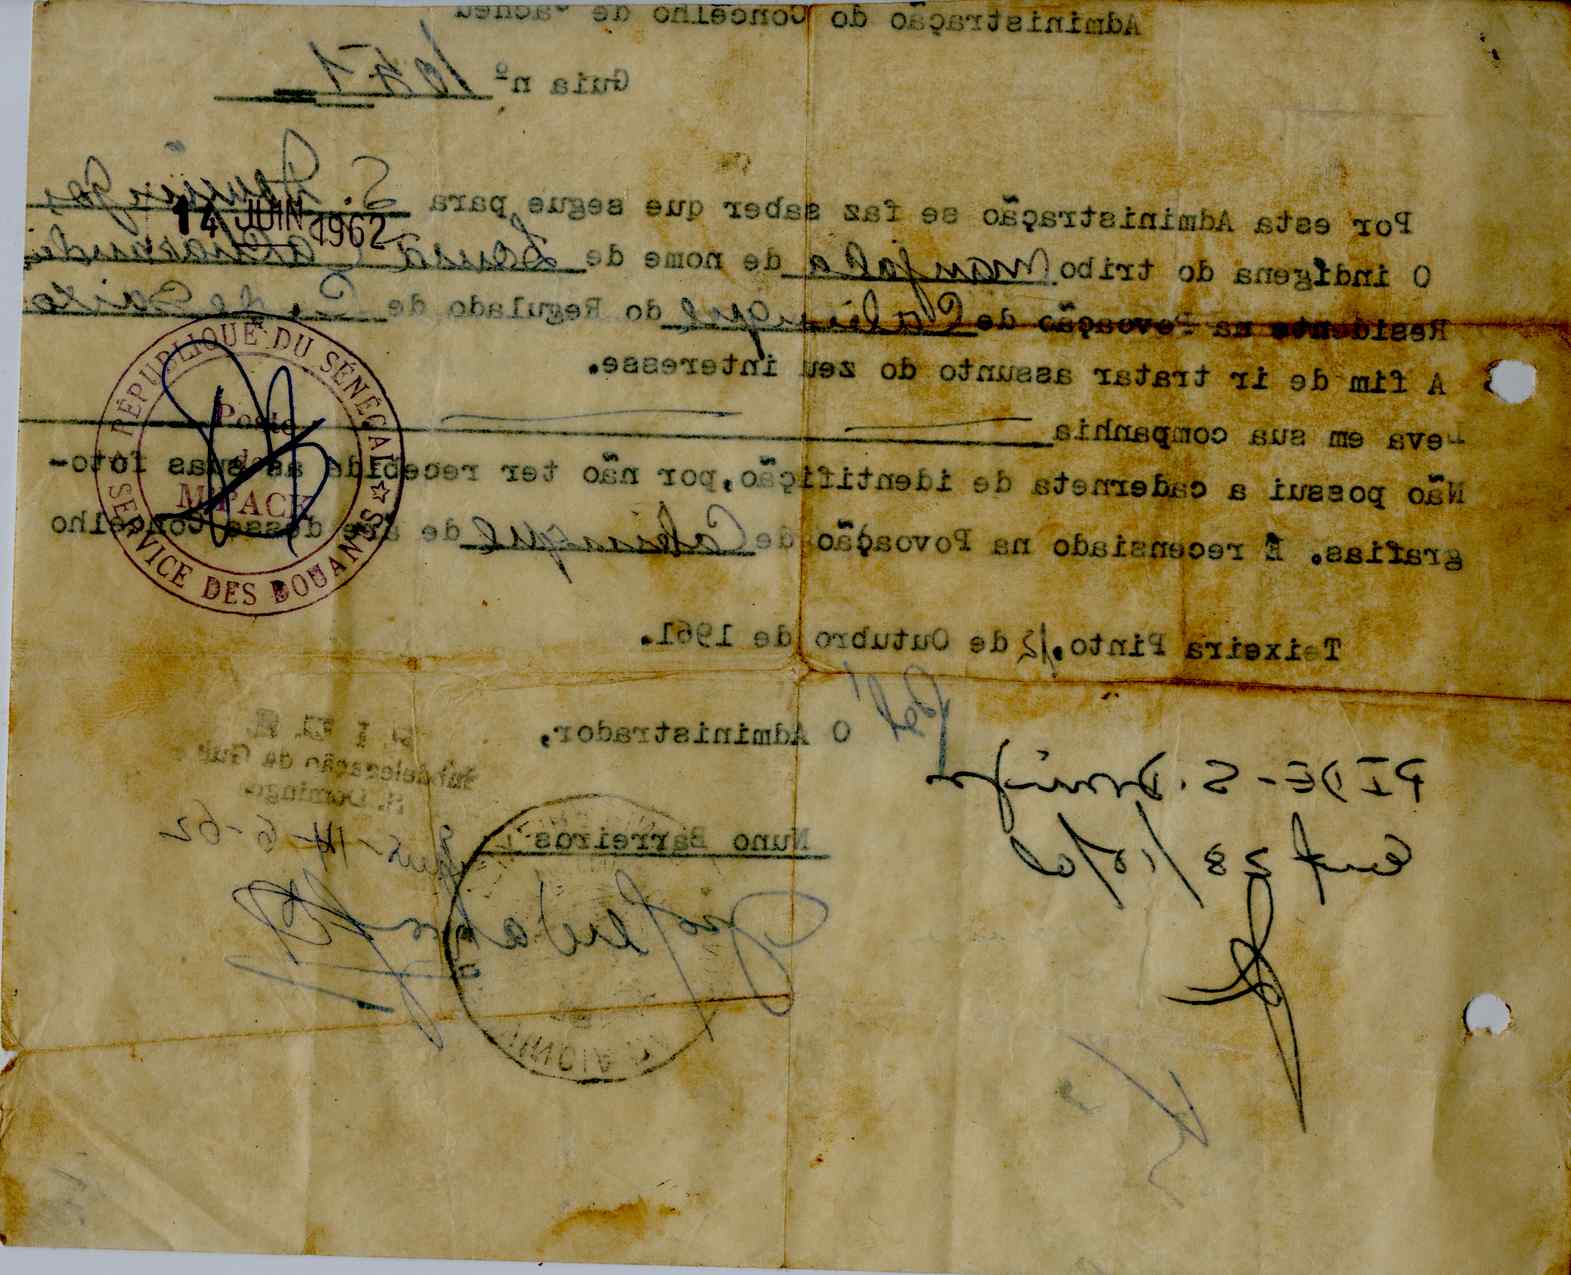 Administração do Concelho de Cacheu
Guia nº 1047
Por esta Administração se faz saber que segue para S. Domingos
14 JUIN 1962
O indígena do tribo Manjaca de nome de
Residente na Povoação de do Regulado de
A fim de ir tratar assunto do zeu interesse.
Leva em sua companhia
Não possui a caderneta de identifição, por não ter recebido as suas foto-
grafias. É recensiado na Povoação de de desse Concelho
RÉPUBLIQUE DU SÉNÉGAL
Poste
de
M'PACK
SERVICE DES DOUANES
Teixeira Pinto, 12 de Outubro de 1961.
O Administrador,
Nuno Barreiros
P. I. D. E.
Subdelegação da Guiné
S. Domingos
14-6-62
PIDE - S. Domingos